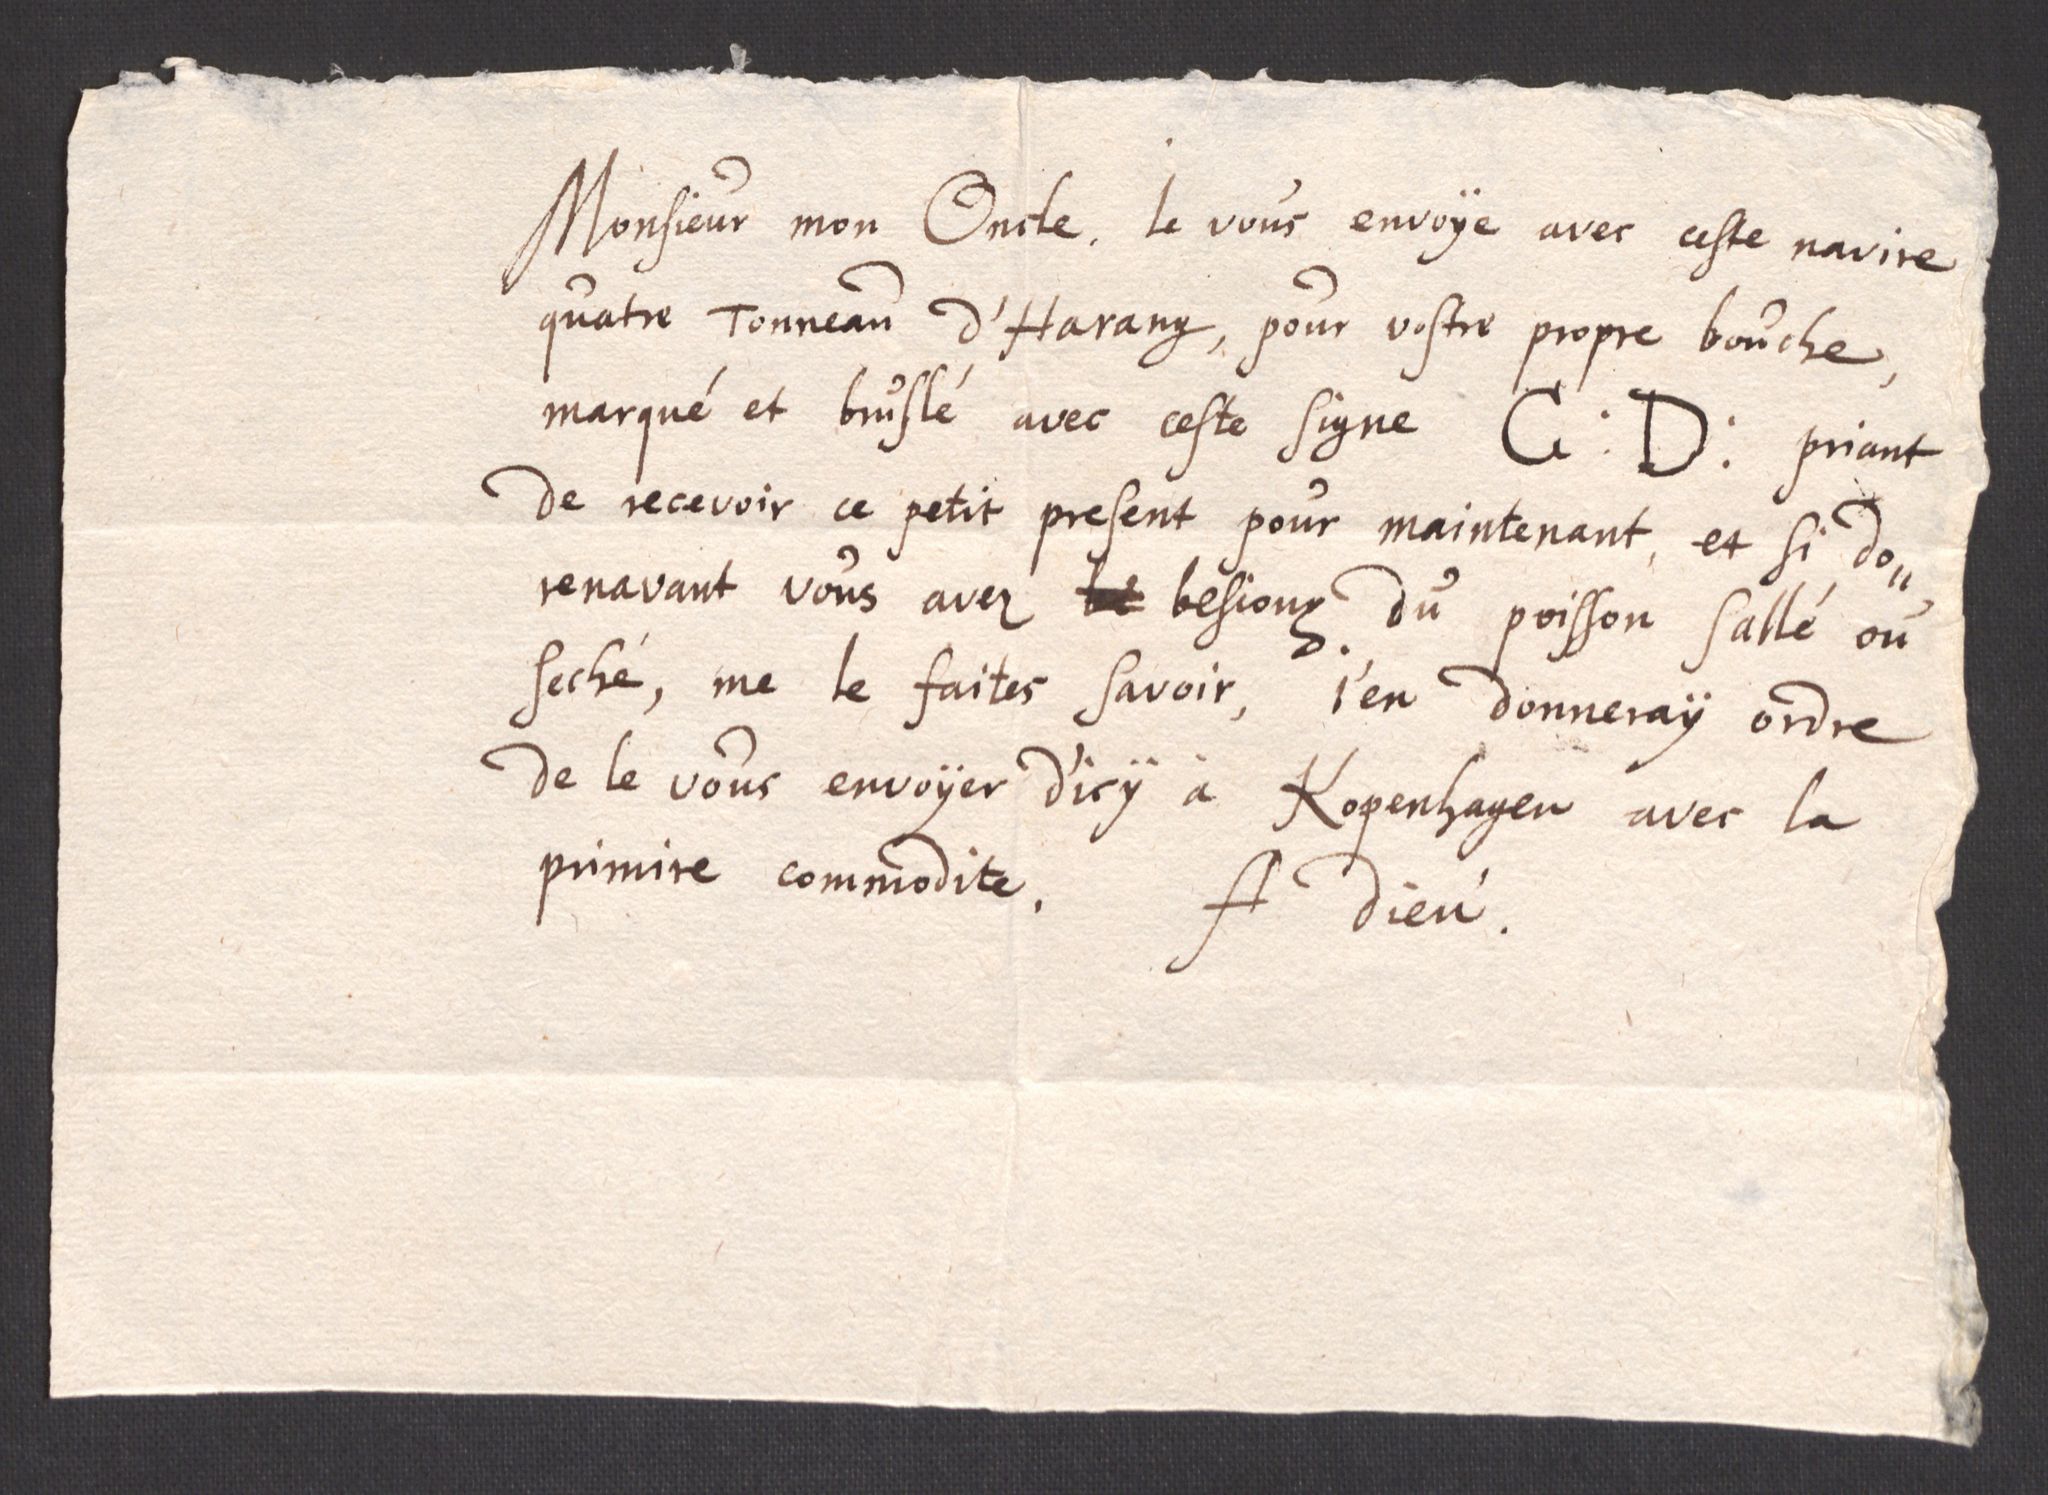 Monsieur mon Oncle. Ie vous envoÿe avec ceste navire
quatre Tonneau d'Harang, pour vostre propre bouche,
marqué et bruslé avec ceste signe G : D : priant
de recevoir ce petit present pour maintenant, et si do„
renavant vous avez besiong du poisson sallé ou
seché, me le faites savoir, i'en donneraÿ ordre
de le vous envoÿer d'icÿ à Kopenhagen avec la
primire commodite. A dieu.